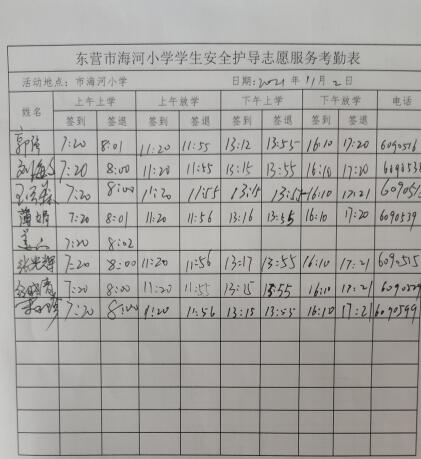 东营市海河小学学生安全护导志愿服务考勤表
活动地点：市海河小学 日期：2021年11月2日
姓名 上午上学 上午放学 下午上学 下午放学 电话
签到 签退 签到 签退 签到 签退 签到 签退
7:20 8:01 11:20 11:55 13:12 13:55 16:10 17:20 6090516
7:20 8:00 11:20 11:55 13:15 13:55 16:10 17:20
7:20 8:00 11:20 11:55 13:15 13:55 16:10 17:21
薄娟 7:20 8:01 11:20 11:56 13:16 13:55 16:10 17:20 6090539
7:20 8:02
张光辉 7:20 8:00 11:20 11:56 13:17 13:55 16:10 17:21 6090515
7:20 8:00 11:20 11:55 13:15 13:55 16:10 17:21
7:20 8:00 11:20 11:56 13:15 13:55 16:10 17:21 6090599